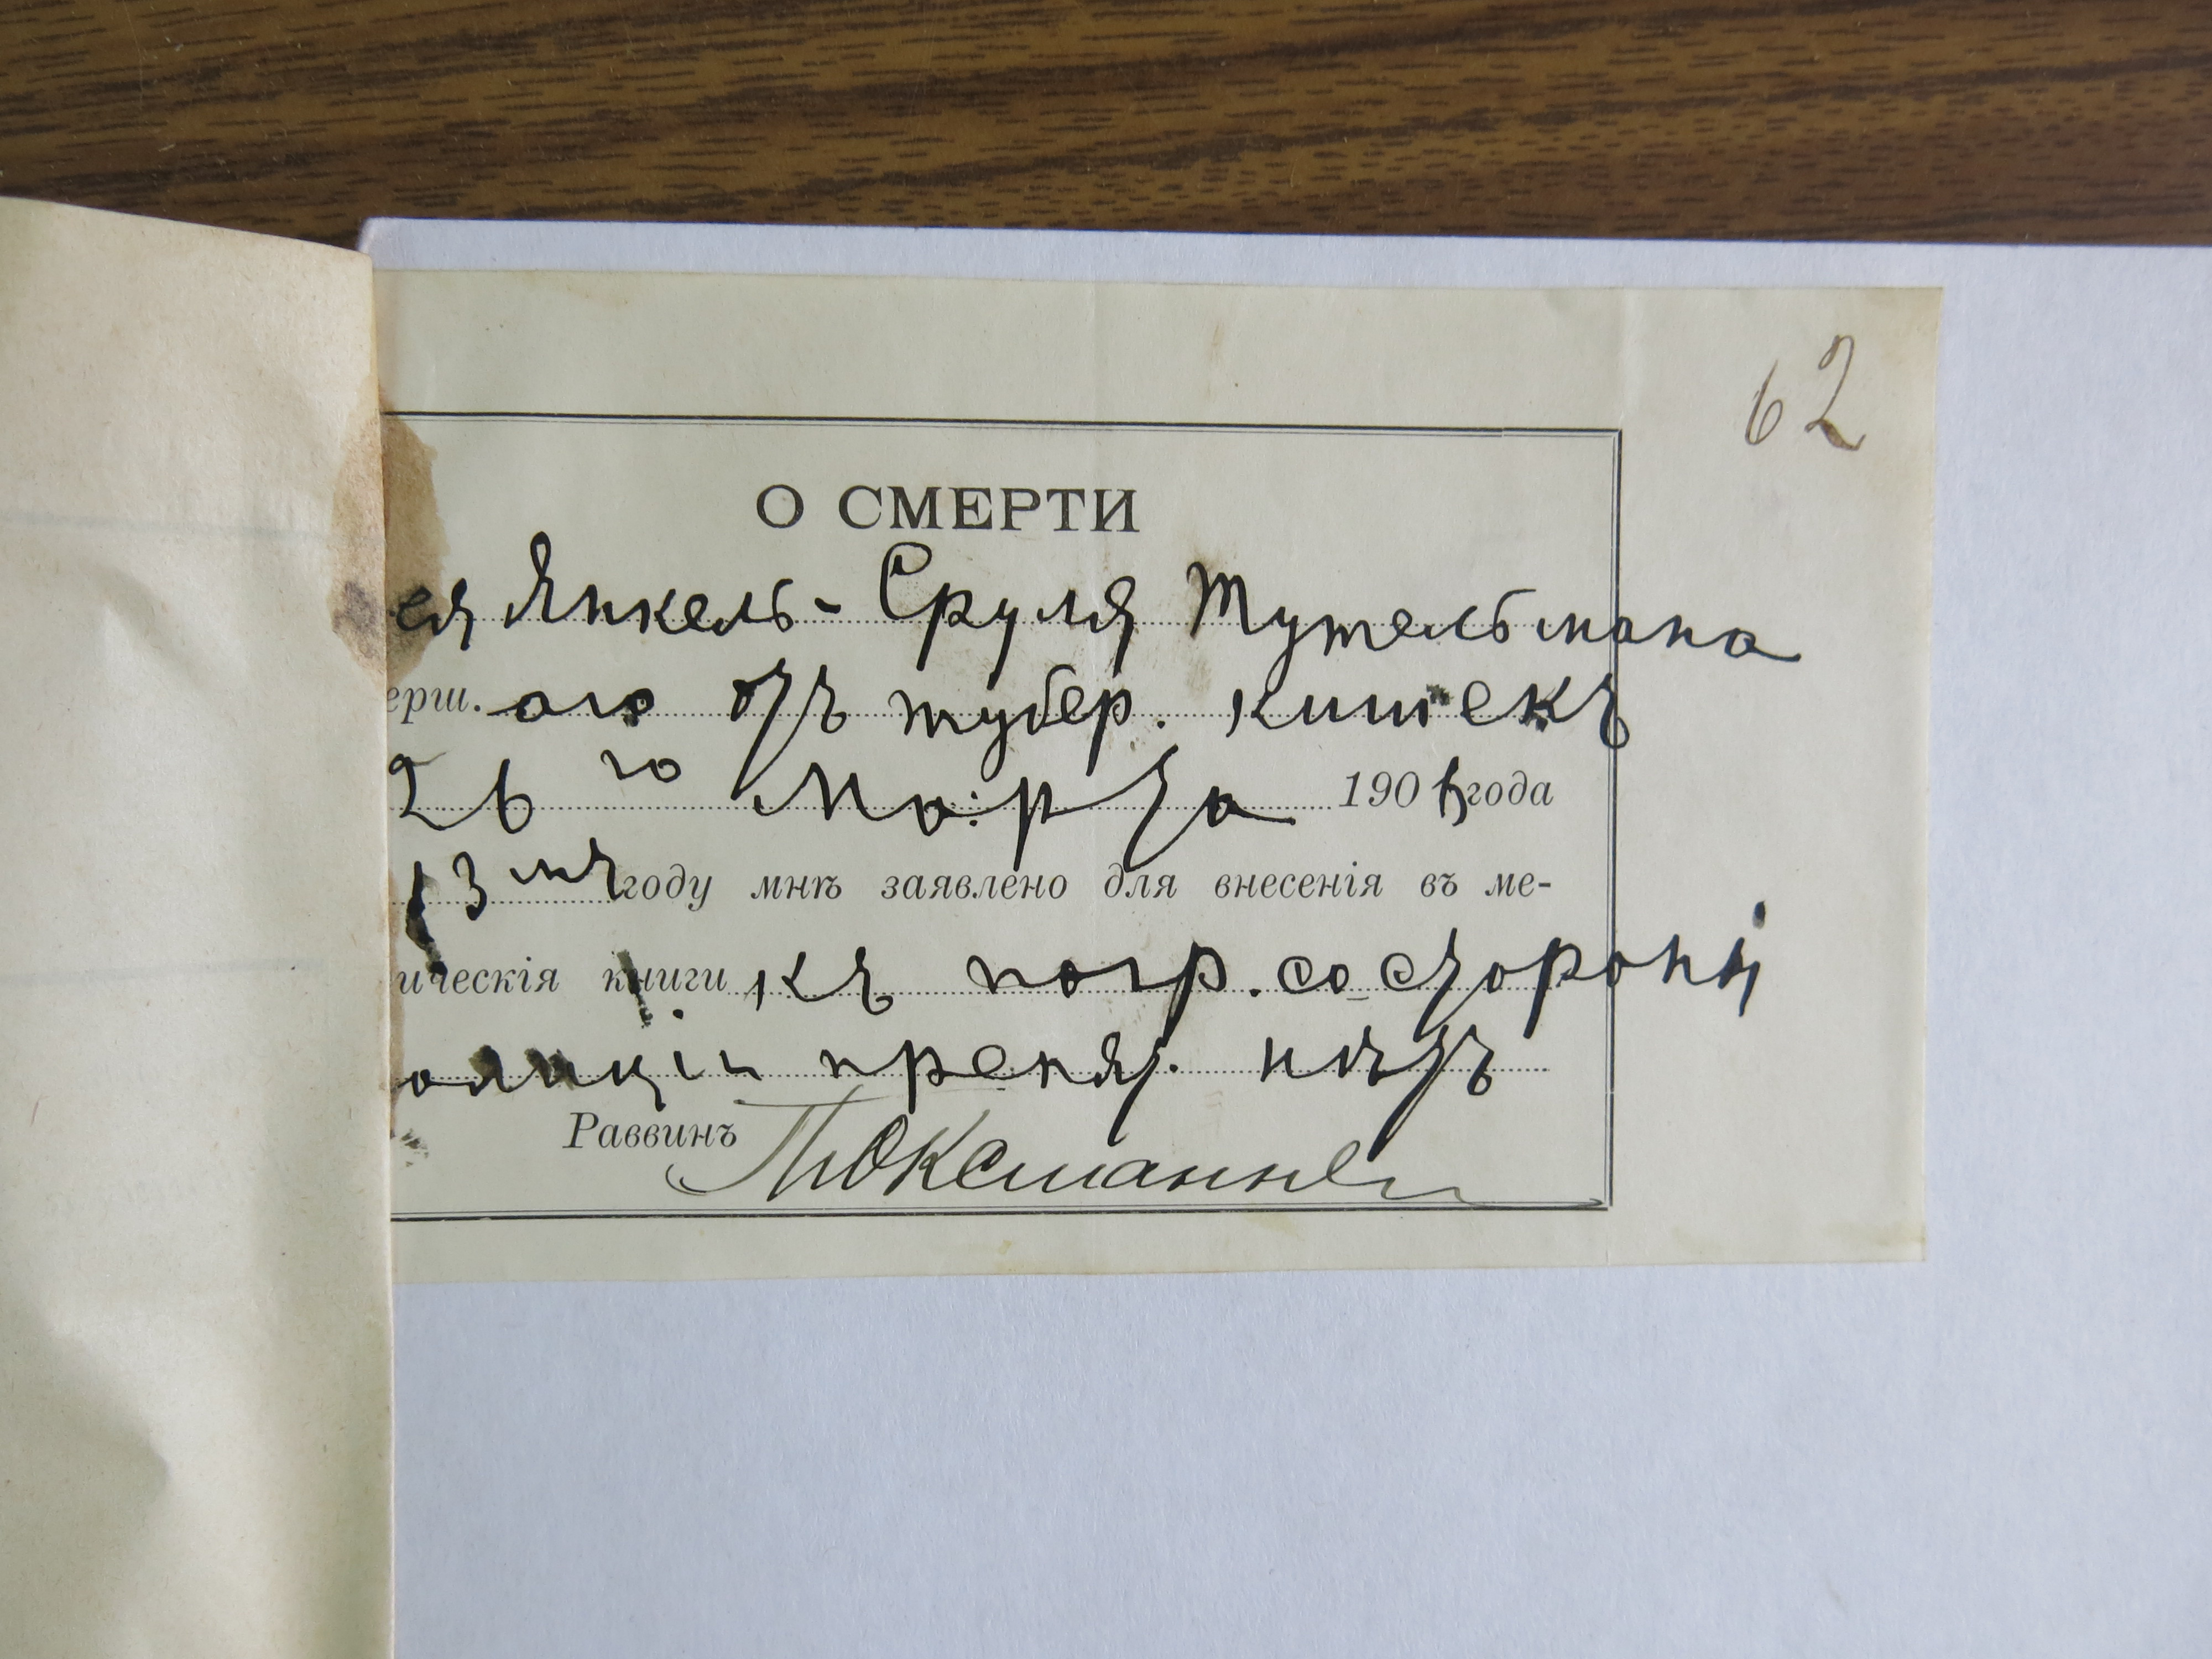 62
О СМЕРТИ
ея Янкель-Сруля Тутельмана
ерш. аго отъ тубер. кишекъ
26го Марта 190 года
13мъ году мнѣ заявлено для внесенія въ ме-
ическія книги къ погр. со стороны
олиціи препят. нѣтъ
Раввинъ